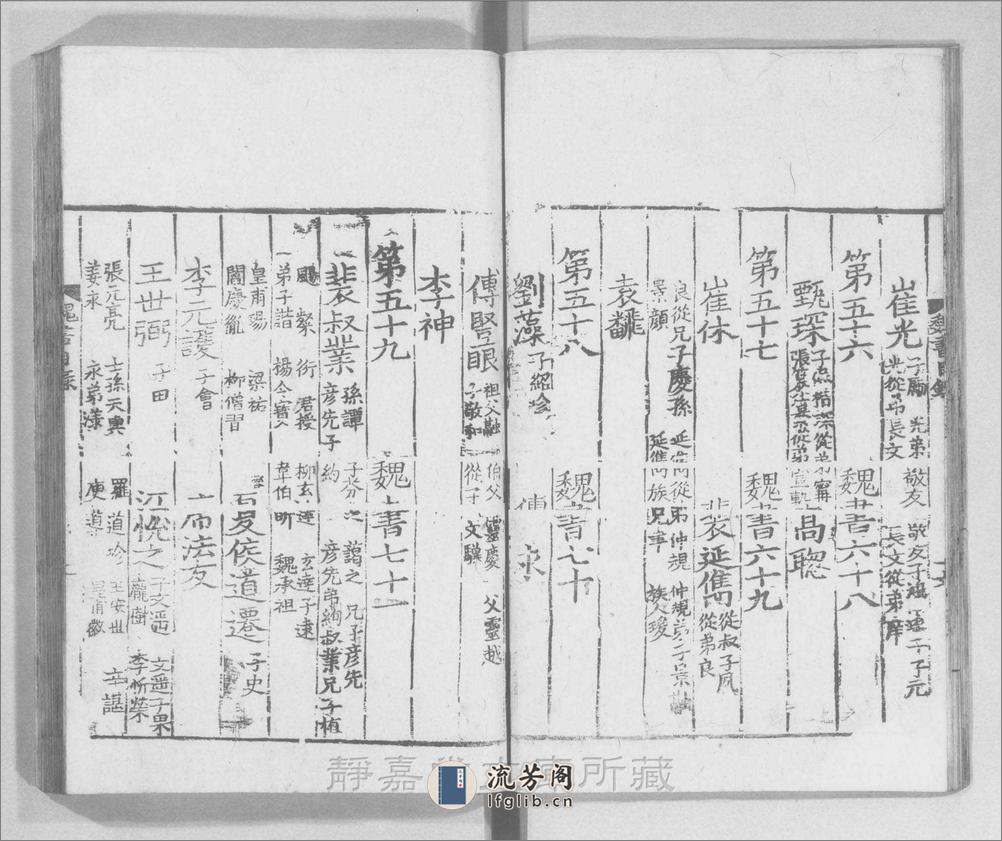 魏書目錄
崔光 子勵 光弟敬友 敬友子鴻 鴻子子元 光從弟長文 長文從弟庠
第五十六 魏書六十八
甄琛 子侃 楷 琛從弟 高聰
第五十七 魏書六十九
崔休 裴延雋 從叔子夙 從弟良
良從兄子慶孫 延雋從弟仲規 仲規弟子景鸞 景顏 延雋族兄聿 族人瑗
袁飜
第五十八 魏書七十
劉藻 子紹珍 傅永
傅竪眼 祖父融 伯父靈慶 父靈越 子敬和 從子文驥
李神
第五十九 魏書七十一
裴叔業 孫譚 子芬之 藹之 兄子彥先 彥先子約 彥先弟絢 叔業兄子植
颺 粲 衍 君授 柳玄達 玄達子遠
弟子諧 楊令寶 韋伯昕 魏承祖
皇甫瑒 梁祐
閻慶胤 柳僧習
夏侯道遷 子史
李元護 子會 席法友
王世弼 子由 江悅之 子文遙 文遙子果 龐樹 李忻榮
張元亮 士孫天與 羅道珍 王安世 辛諶
姜永 永弟漾 庾道 皇甫徽
魏書目錄
靜嘉堂文庫所藏
流芳阁
lfglib.cn